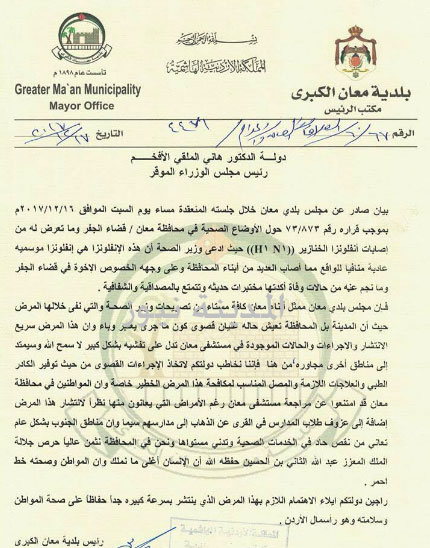 بسم الله الرحمن الرحيم
المملكة الأردنية الهاشمية
تأسست عام ١٨٩٨ م
Greater Ma`an Municipality
Mayor Office
بلدية معان الكبرى
مكتب الرئيس
الرقم
٤٤٧١
التاريخ
دولة الدكتور هاني الملقي الأفخم
رئيس مجلس الوزراء الموقر
بيان صادر عن مجلس بلدي معان خلال جلسته المنعقدة مساء يوم السبت الموافق ٢٠١٧/١٢/١٦م
بموجب قراره رقم ٧٣/٨٧٣ حول الأوضاع الصحية في محافظة معان / قضاء الجفر وما تعرض له من
إصابات أنفلونزا الخنازير ((H1 N1)) حيث ادعى وزير الصحة أن هذه الإنفلونزا هي إنفلونزا موسميه
عادية منافيا للواقع مما أصاب العديد من أبناء المحافظة وعلى وجهه الخصوص الاخوة في قضاء الجفر
وما نجم عنه من حالات وفاة أكدتها مختبرات حديثه وتتمتع بالمصداقية والشفافية .
فان مجلس بلدي معان ممثل أبناء معان كافة مستاء من تصريحات وزير الصحة والتي نفى خلالها المرض
حيث أن المدينة بل المحافظة تعيش حاله غليان قصوى كون ما جرى يعتبر وباء وان هذا المرض سريع
الانتشار والإجراءات والحالات الموجودة في مستشفى معان تدل على تفشيه بشكل كبير لا سمح الله وسيمتد
إلى مناطق أخرى مجاوره من هنا فإننا نخاطب دولتكم لاتخاذ الإجراءات القصوى من حيث توفير الكادر
الطبي والعلاجات اللازمة والمصل المناسب لمكافحة هذا المرض الخطير خاصة وان المواطنين في محافظة
معان قد امتنعوا عن مراجعة مستشفى معان رغم الأمراض التي يعانون منها نظراً لانتشار هذا المرض
إضافة إلى عزوف طلاب المدارس في القرى عن الذهاب إلى مدارسهم سيما وان مناطق الجنوب بشكل عام
تعاني من نقص حاد في الخدمات الصحية وتدني مستواها ونحن في المحافظة نثمن عالياً حرص جلالة
الملك المعزز عبد الله الثاني بن الحسين حفظه الله أن الإنسان أغلى ما نملك وان المواطن وصحته خط
احمر .
راجين دولتكم ايلاء الاهتمام اللازم بهذا المرض الذي ينتشر بسرعة كبيره جداً حفاظاً على صحة المواطن
وسلامته وهو راسمال الأردن .
رئيس بلدية معان الكبرى
المدينة نيوز